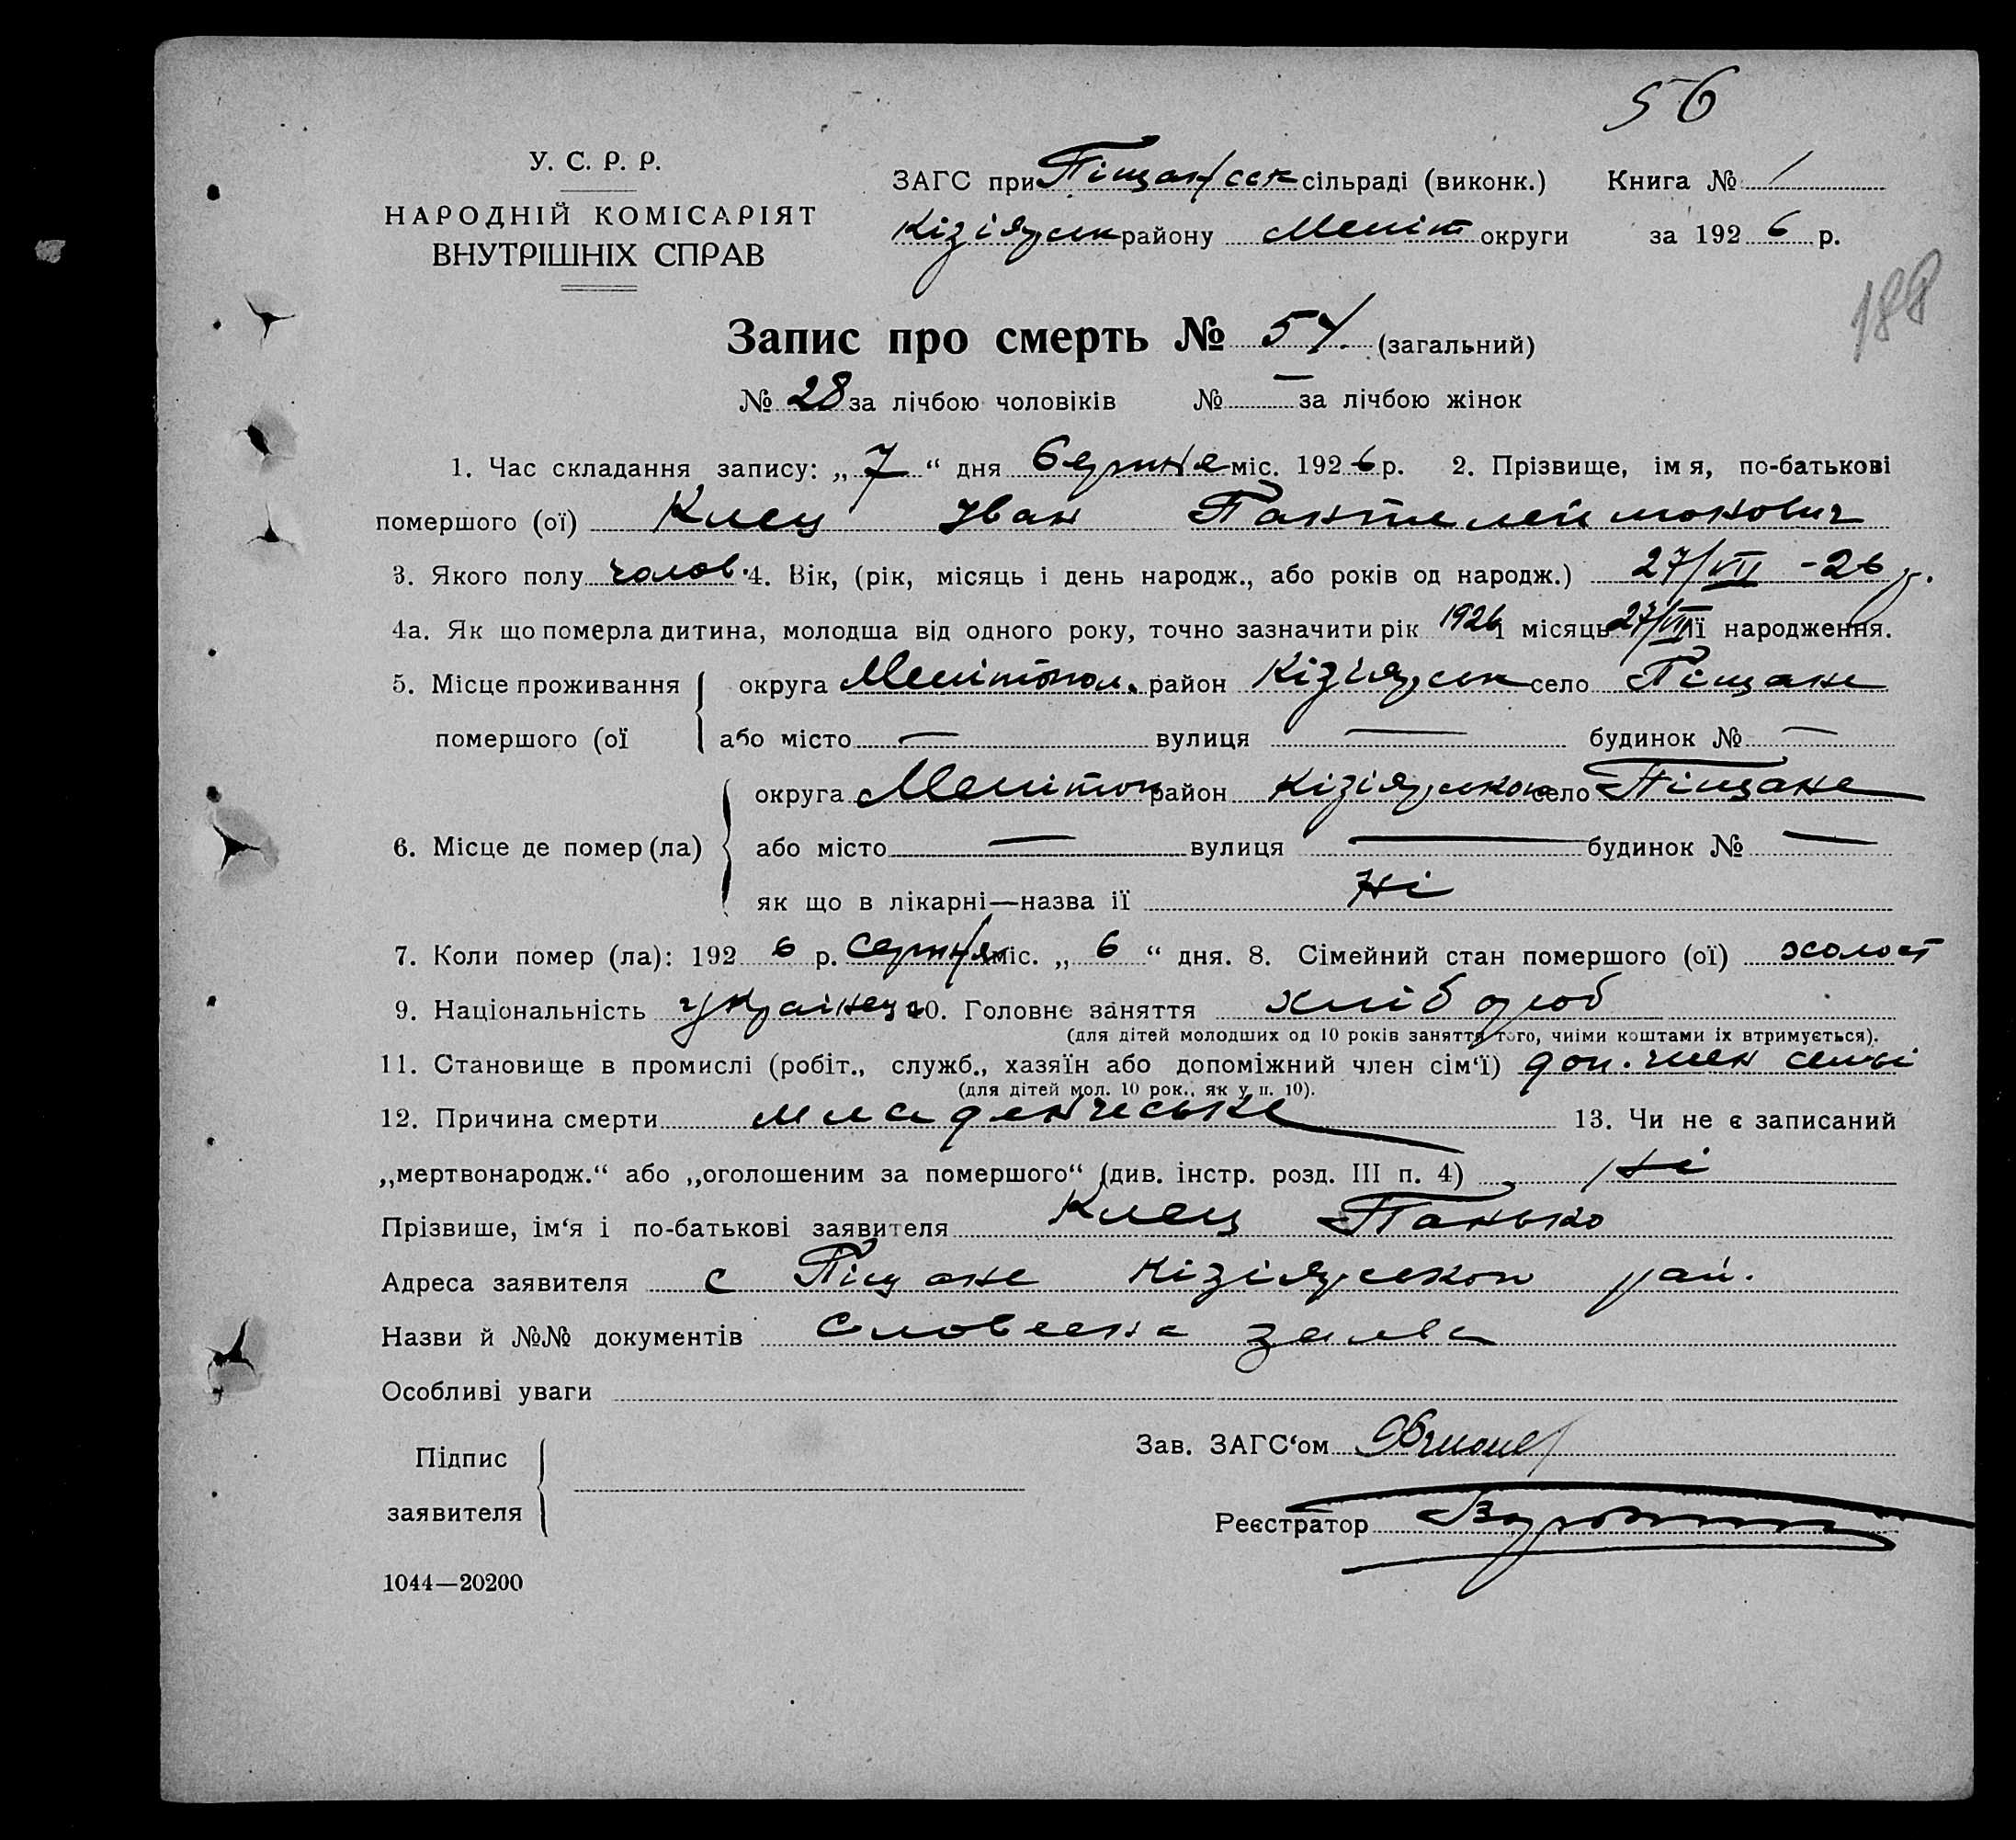 56
У. С. Р. Р.
НАРОДНІЙ КОМІСАРІЯТ
ВНУТРІШНІХ СПРАВ
ЗАГС при Піщанськ сільраді (виконк.) Книга № 1
Кізіярськ району Меліт округи за 1926 р.
188
Запис про смерть № 54. (загальний)
№ 28 за лічбою чоловіків № — за лічбою жінок
1. Час складання запису: „7“ дня Серпня міс. 1926 р. 2. Прізвище, імя, по-батькові
помершого (ої) Клец Іван Пантелеймонович
3. Якого полу чолов. 4. Вік, (рік, місяць і день народж., або років од народж.) 27/VII -26 р.
4а. Як що померла дитина, молодша від одного року, точно зазначити рік 1926 і місяць 27/VII її народження.
5. Місце проживання округа Мелітопол. район Кізіярськ село Піщане
помершого (ої або місто — вулиця — будинок № —
округа Мелітоп район Кізіярськом село Піщане
6. Місце де помер (ла) або місто — вулиця — будинок № —
як що в лікарні—назва ії Ні
7. Коли помер (ла): 1926 р. Серпня міс. „6“ дня. 8. Сімейний стан помершого (ої) холост
9. Національність українец 10. Головне заняття хлібороб
(для дітей молодших од 10 років заняття того, чиїми коштами іх втримується).
11. Становище в промислі (робіт., служб., хазяїн або допоміжний член сім‘ї) доп. член семьї
(для дітей мол. 10 рок., як у п. 10).
12. Причина смерти младенчеське 13. Чи не є записаний
„мертвонародж.“ або „оголошеним за помершого“ (див. інстр. розд. III п. 4) Ні
Прізвише, ім‘я і по-батькові заявителя Клец Панько
Адреса заявителя с Піщане Кізіярськом рай.
Назви й №№ документів Словесна заява
Особливі уваги
Підпис
заявителя
Зав. ЗАГС‘ом
Реєстратор
1044—20200